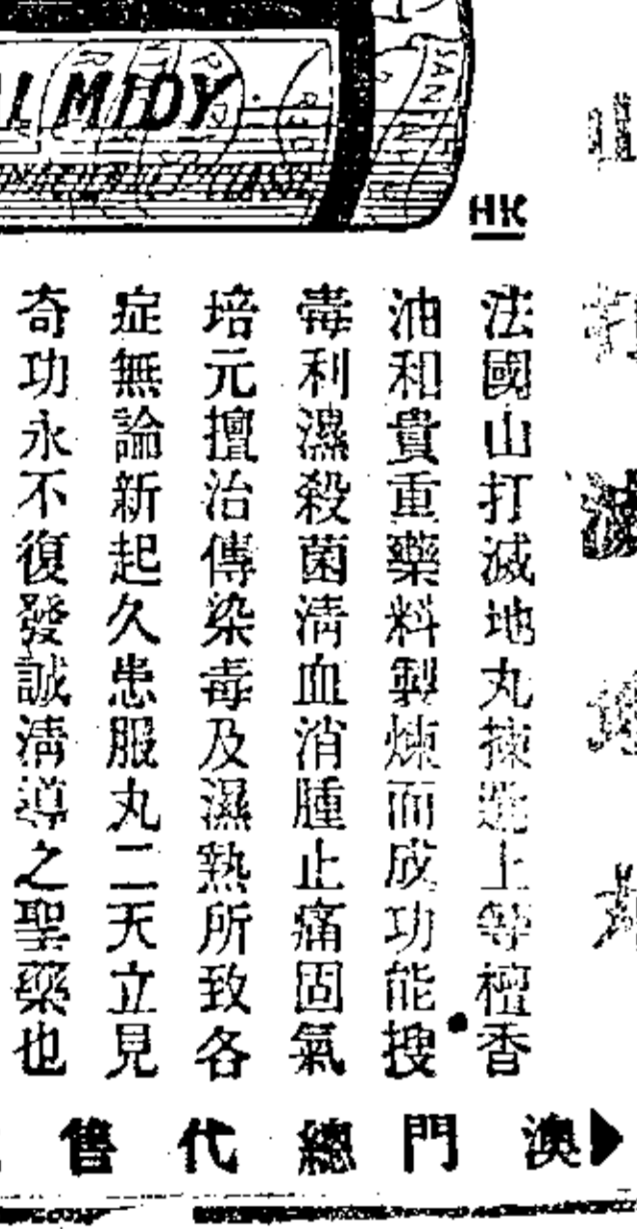 MIDY
HK
山打滅地丸
法國山打滅地丸揀選上等檀香
油和貴重藥料製煉而成功能搜
毒利濕殺菌清血消腫止痛固氣
培元擅治傳染毒及濕熱所致各
症無論新起久患服丸二天立見
奇功永不復發誠清導之聖藥也
澳門總代售